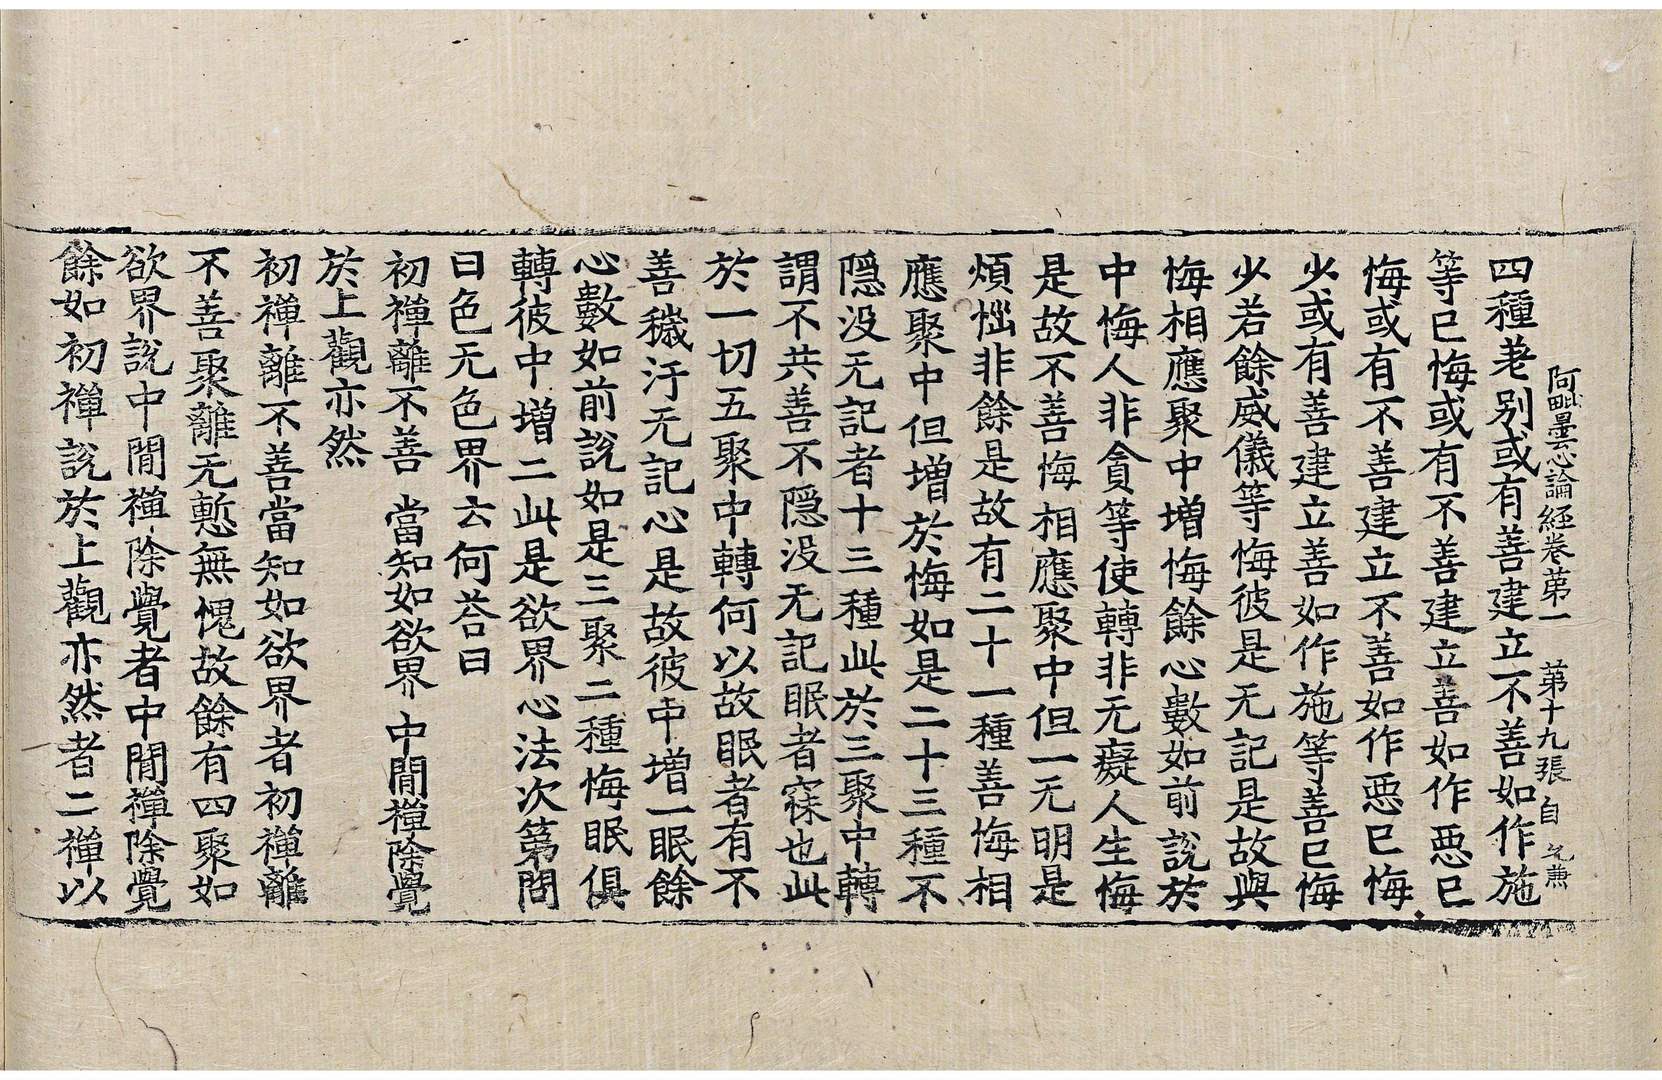 阿毗曇心論經卷第一　第十九張　自
四種差別或有善建立不善如作施
等已悔或有不善建立善如作惡已
悔或有不善建立不善如作惡已悔
少或有善建立善如作施等善已悔
少若餘威儀等悔彼是无記是故與
悔相應聚中增悔餘心數如前說於
中悔人非貪等使轉非无癡人生悔
是故不善悔相應聚中但一无明是
煩惱非餘是故有二十一種善悔相
應聚中但增於悔如是二十三種不
隱没无記者十三種此於三聚中轉
謂不共善不隱没无記眠者寐也此
於一切五聚中轉何以故眠者有不
善穢汙无記心是故彼中增一眠餘
心數如前說如是三聚二種悔眠俱
轉彼中增二此是欲界心法次第問
曰色无色界云何荅曰
初禪離不善　當知如欲界　中閒禪除覺
於上觀亦然
初禪離不善當知如欲界者初禪離
不善聚離无慙無愧故餘有四聚如
欲界說中閒禪除覺者中閒禪除覺
餘如初禪說於上觀亦然者二禪以